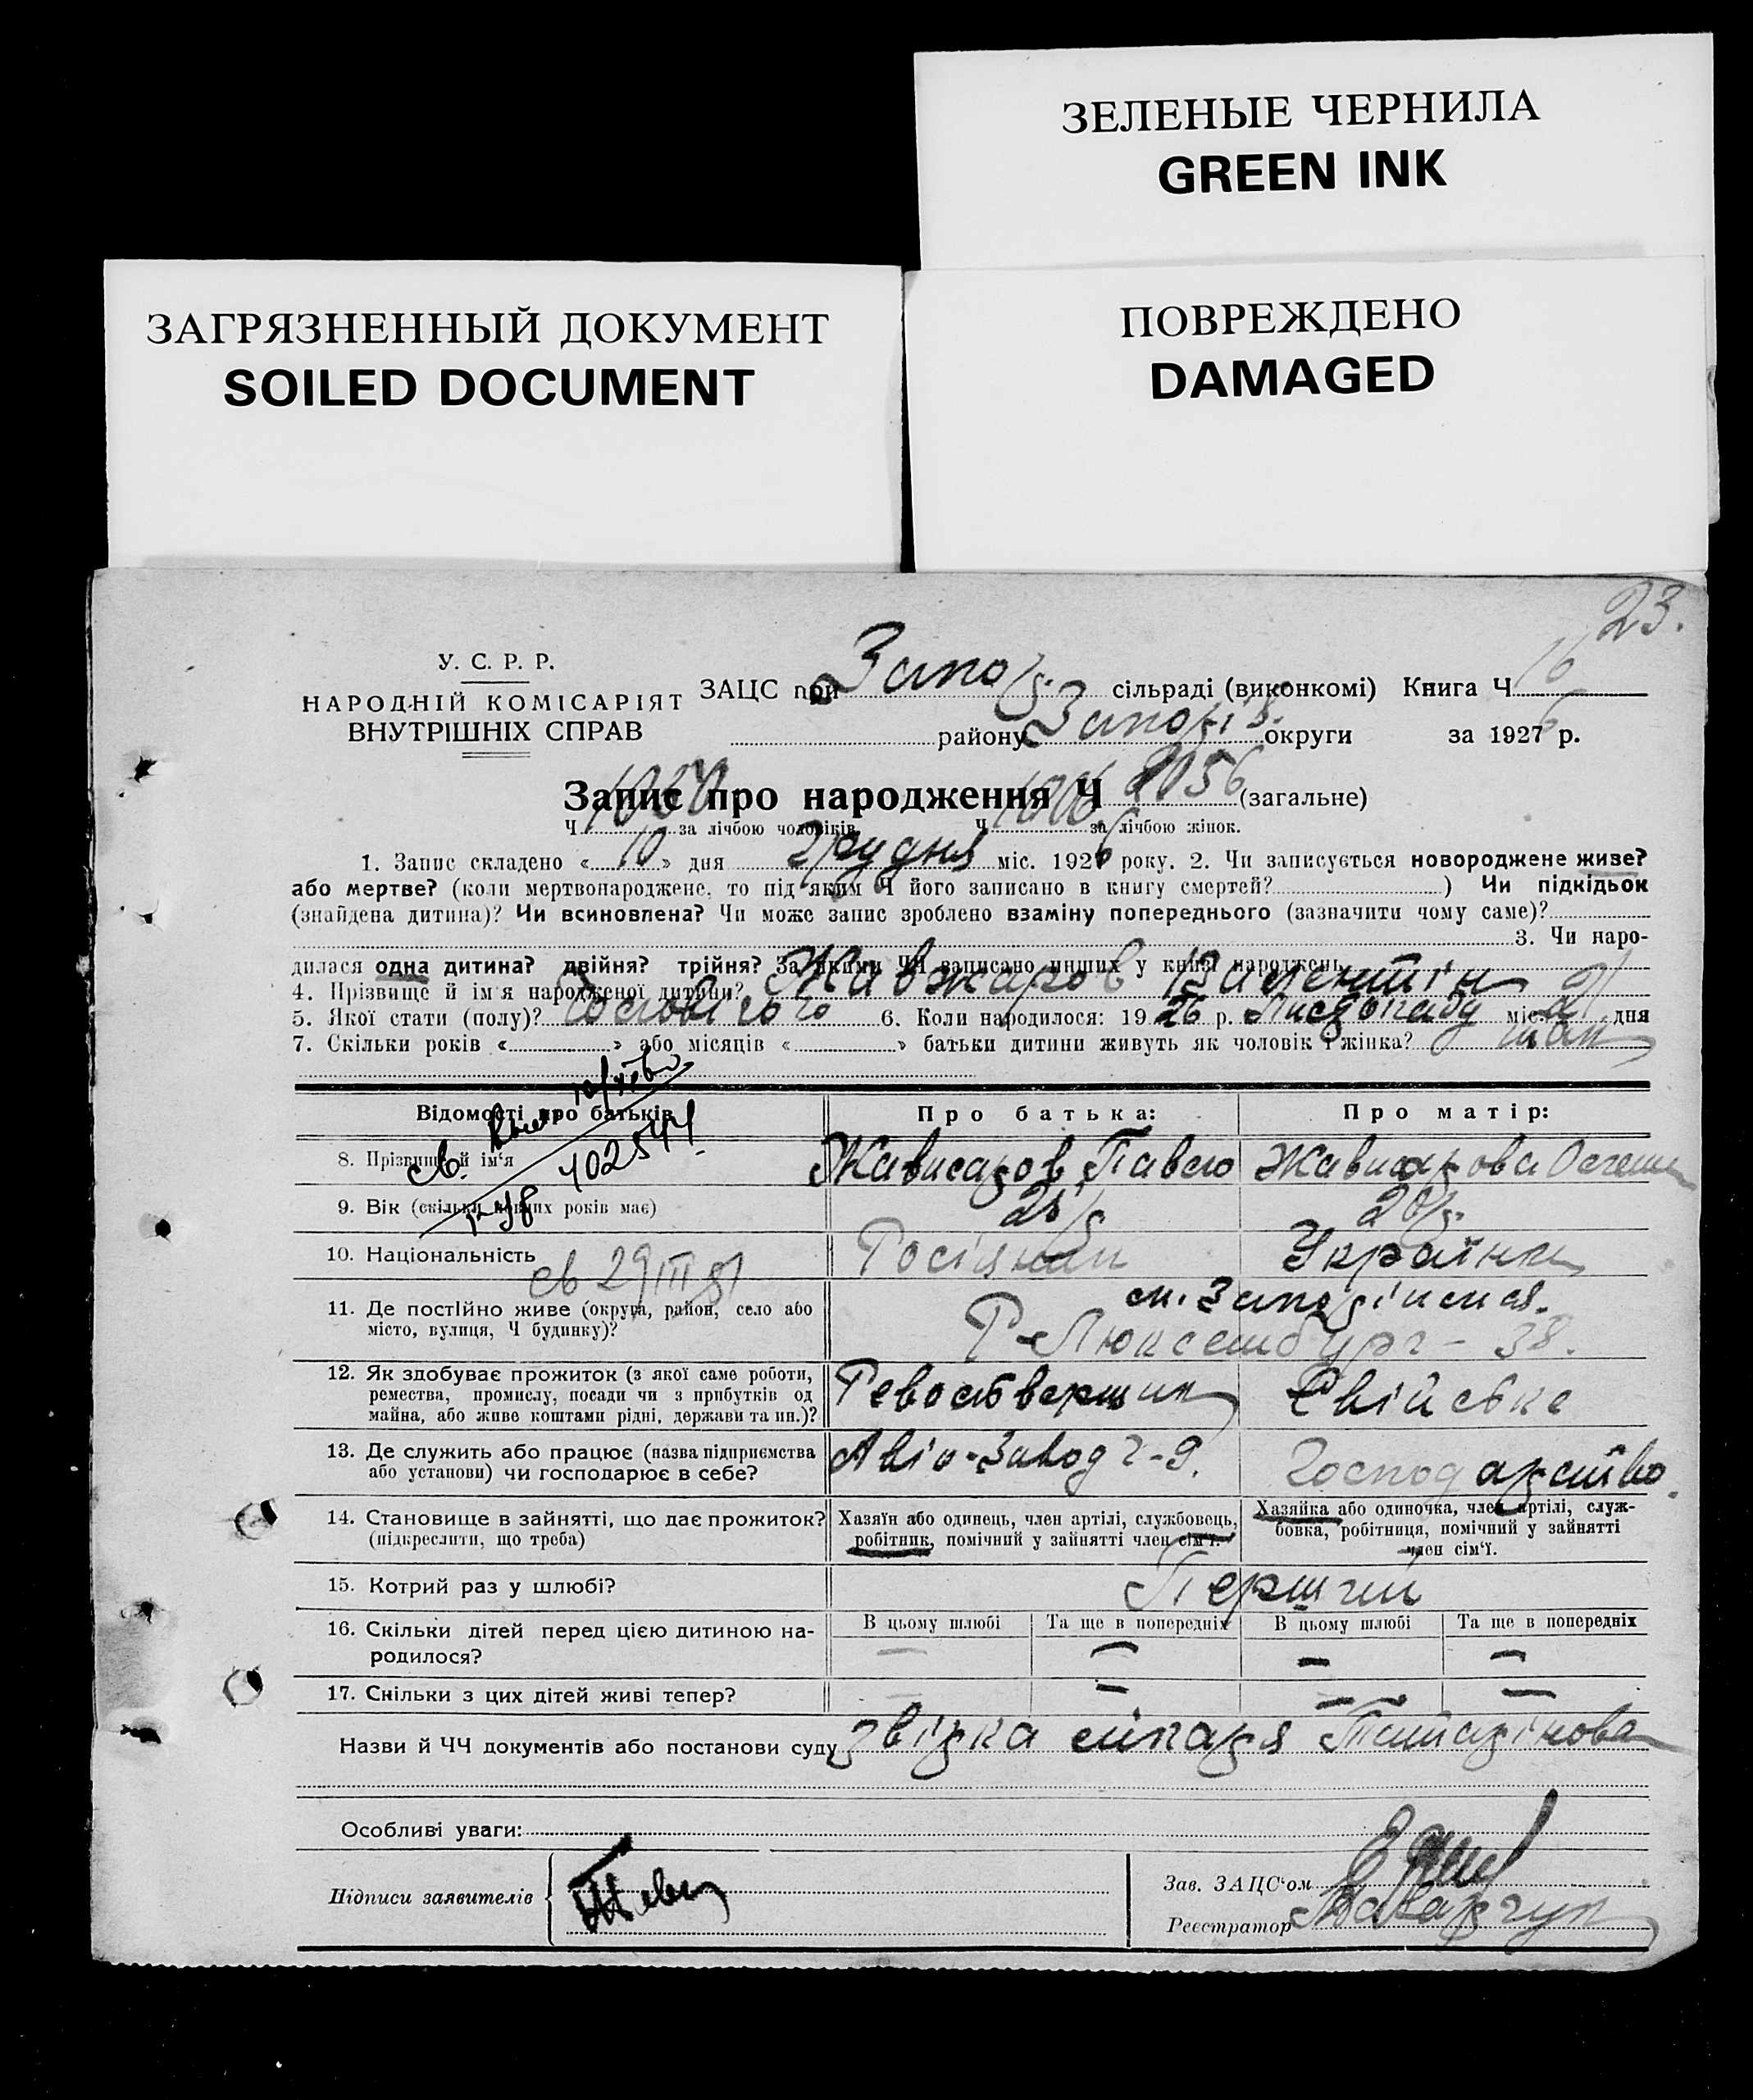 ЗЕЛЕНЫЕ ЧЕРНИЛА
GREEN INK
ЗАГРЯЗНЕННЫЙ ДОКУМЕНТ
SOILED DOCUMENT
ПОВРЕЖДЕНО
DAMAGED
23.
У. С. Р. Р.
НАРОДНІЙ КОМІСАРІЯТ
ВНУТРІШНІХ СПРАВ
ЗАЦС при Запор. сільраді (виконкомі) Книга Ч 16
району Запорів. округи за 1926 р.
Запис про народження Ч 2056 (загальне)
Ч 1050 за лічбою чоловіків Ч 1006 за лічбою жінок.
1. Запис складено «10» дня Грудня міс. 1926 року. 2. Чи записується новороджене живе?
або мертве? (коли мертвонароджене, то під яким Ч його записано в книгу смертей? ) Чи підкідьок
(знайдена дитина)? Чи всиновлена? Чи може запис зроблено взаміну попереднього (зазначити чому саме)?
3. Чи наро-
дилася одна дитина? двійня? трійня? За якими ЧЧ записано инших у книзі народжень
4. Прізвище й ім'я народженої дитини? Жавжаров Валентін
5. Якої стати (полу)? Чоловічого 6. Коли народилося: 1926 р. Листопаду міс. 21 дня
7. Скільки років « » або місяців « » батьки дитини живуть як чоловік і жінка?
Відомості про батьків Про батька: Про матір:
св. 402544
8. Прізвище й ім'я Жавжаров Павло Жавжарова
9. Вік (скільки повних років має) 28 р 20 р.
10. Національність Росіянин Українка
св 29 III 51
11. Де постійно живе (округа, район, село або місто, вулиця, Ч будинку)? м. Запоріжжя.
Р-Люксембург - 38.
12. Як здобуває прожиток (з якої саме роботи, ремества, промислу, посади чи з прибутків од майна, або живе коштами рідні, держави та ин.)? Револьверщик Свійське
13. Де служить або працює (назва підприємства або установи) чи господарює в себе? Авіо-Завод г-9. Господарство.
14. Становище в зайнятті, що дає прожиток? (підкреслити, що треба) Хазяїн або одинець, член артілі, службовець, робітник, помічний у зайнятті член сім'ї. Хазяйка або одиночка, член артілі, служ-бовка, робітниця, помічний у зайнятті член сім'ї.
15. Котрий раз у шлюбі? Перший
16. Скільки дітей перед цією дитиною на-родилося? В цьому шлюбі — Та ще в попередніх — В цьому шлюбі — Та ще в попередніх —
17. Скільки з цих дітей живі тепер? — — — —
Назви й ЧЧ документів або постанови суду звірка лікаря
Особливі уваги:
Підписи заявителів
Зав. ЗАЦС'ом
Реєстратор